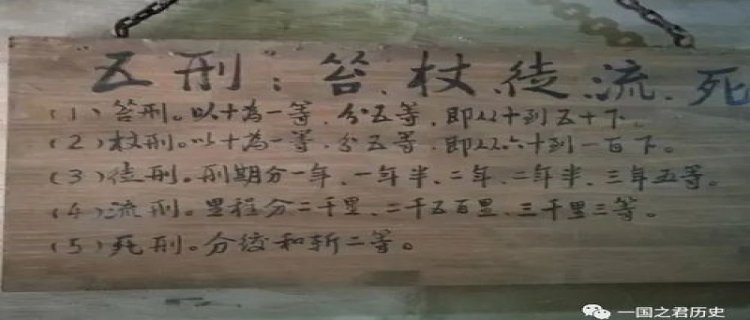 “五刑”：笞、杖、徒、流、死
（1）笞刑。以十为一等，分五等，即从十到五十下。
（2）杖刑。以十为一等，分五等，即从六十到一百下。
（3）徒刑。刑期分一年、一年半、二年、二年半、三年五等。
（4）流刑。里程分二千里、二千五百里、三千里三等。
（5）死刑。分绞和斩二等。
一国之君历史